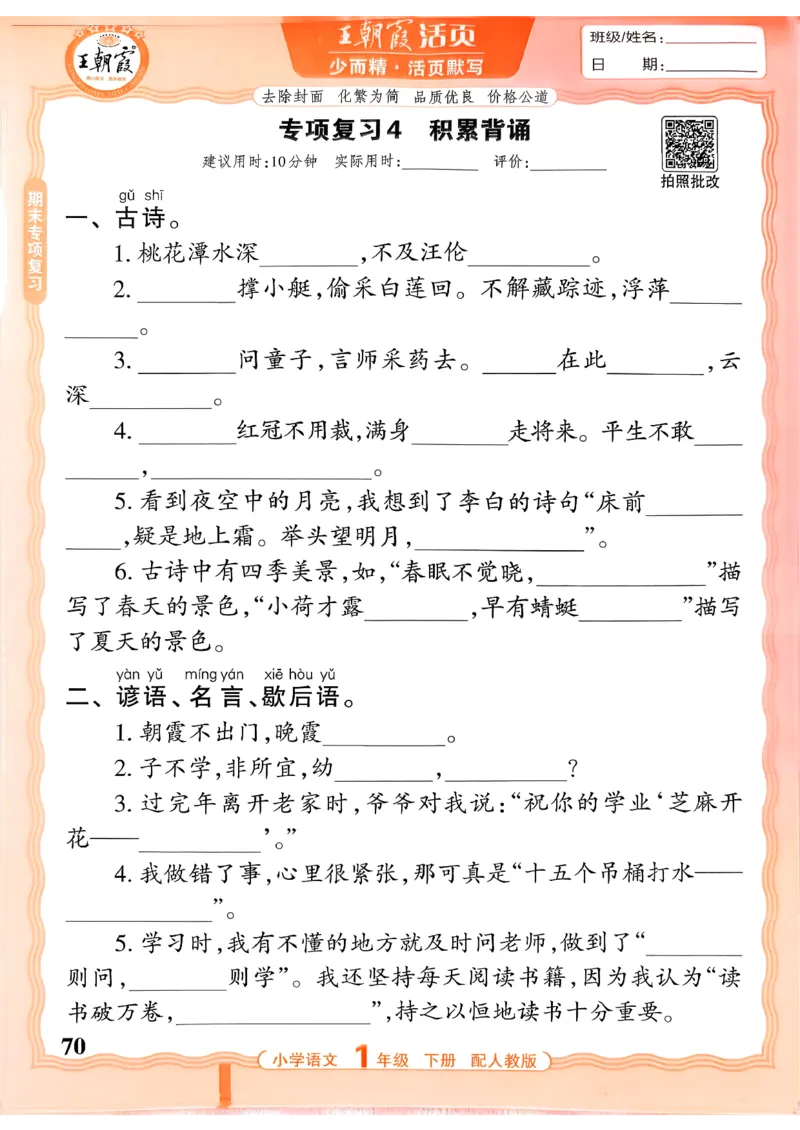 王朝霞活页
少而精·活页默写
王朝霞
班级/姓名:
日 期:
去除封面 化繁为简 品质优良 价格公道
专项复习4 积累背诵
建议用时:10分钟 实际用时:________ 评价:________
拍照批改
期末专项复习
gǔ shī
一、古诗。
1. 桃花潭水深________,不及汪伦__________。
2. ________撑小艇,偷采白莲回。不解藏踪迹,浮萍______
______。
3. ________问童子,言师采药去。______在此________,云
深__________。
4. ________红冠不用裁,满身________走将来。平生不敢____
______,__________________。
5. 看到夜空中的月亮,我想到了李白的诗句“床前________
____,疑是地上霜。举头望明月,______________”。
6. 古诗中有四季美景,如,“春眠不觉晓,______________”描
写了春天的景色,“小荷才露________,早有蜻蜓________”描写
了夏天的景色。
yàn yǔ míng yán xiē hòu yǔ
二、谚语、名言、歇后语。
1. 朝霞不出门,晚霞__________。
2. 子不学,非所宜,幼________,__________?
3. 过完年离开老家时,爷爷对我说:“祝你的学业‘芝麻开
花——__________’。”
4. 我做错了事,心里很紧张,那可真是“十五个吊桶打水——
____________”。
5. 学习时,我有不懂的地方就及时问老师,做到了“________
则问,________则学”。我还坚持每天阅读书籍,因为我认为“读
书破万卷,________________”,持之以恒地读书十分重要。
70
小学语文 1年级 下册 配人教版